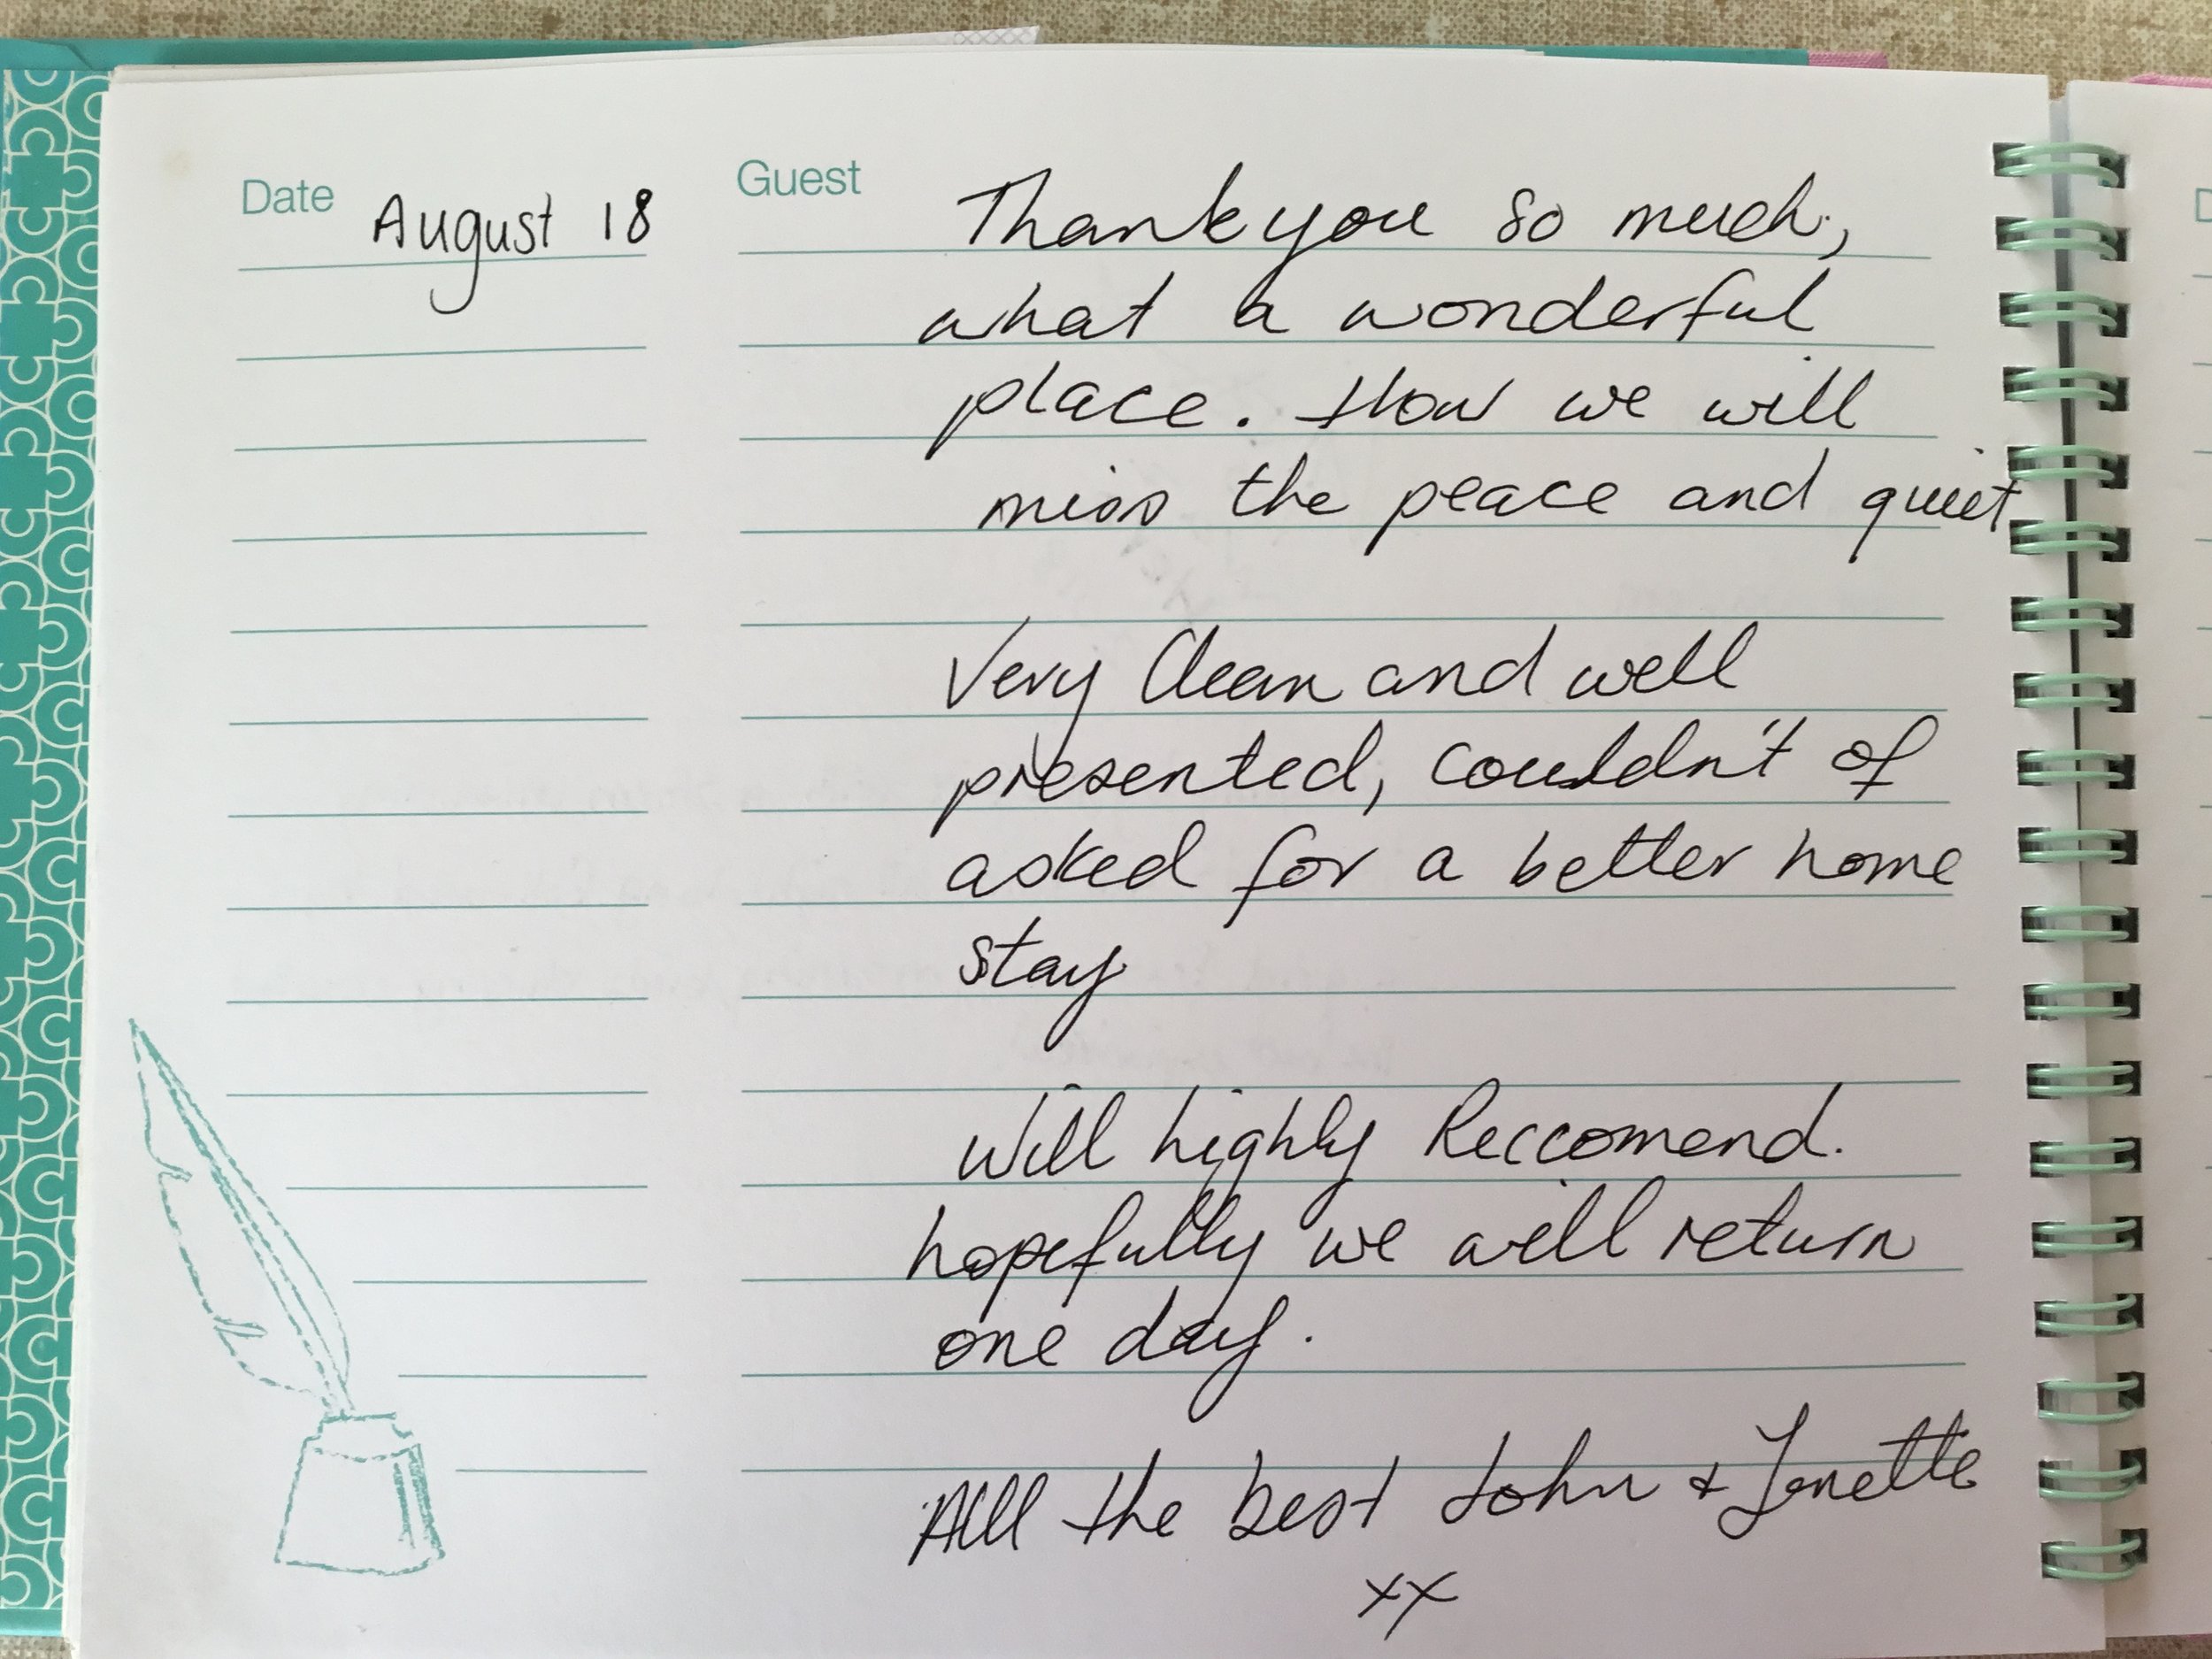 Date August 18 Guest Thank you so much,
what a wonderful
place. How we will
miss the peace and quiet
Very Clean and well
presented, couldn't of
asked for a better home
stay
Will highly Reccomend.
hopefully we will return
one day.
All the best John +
xx